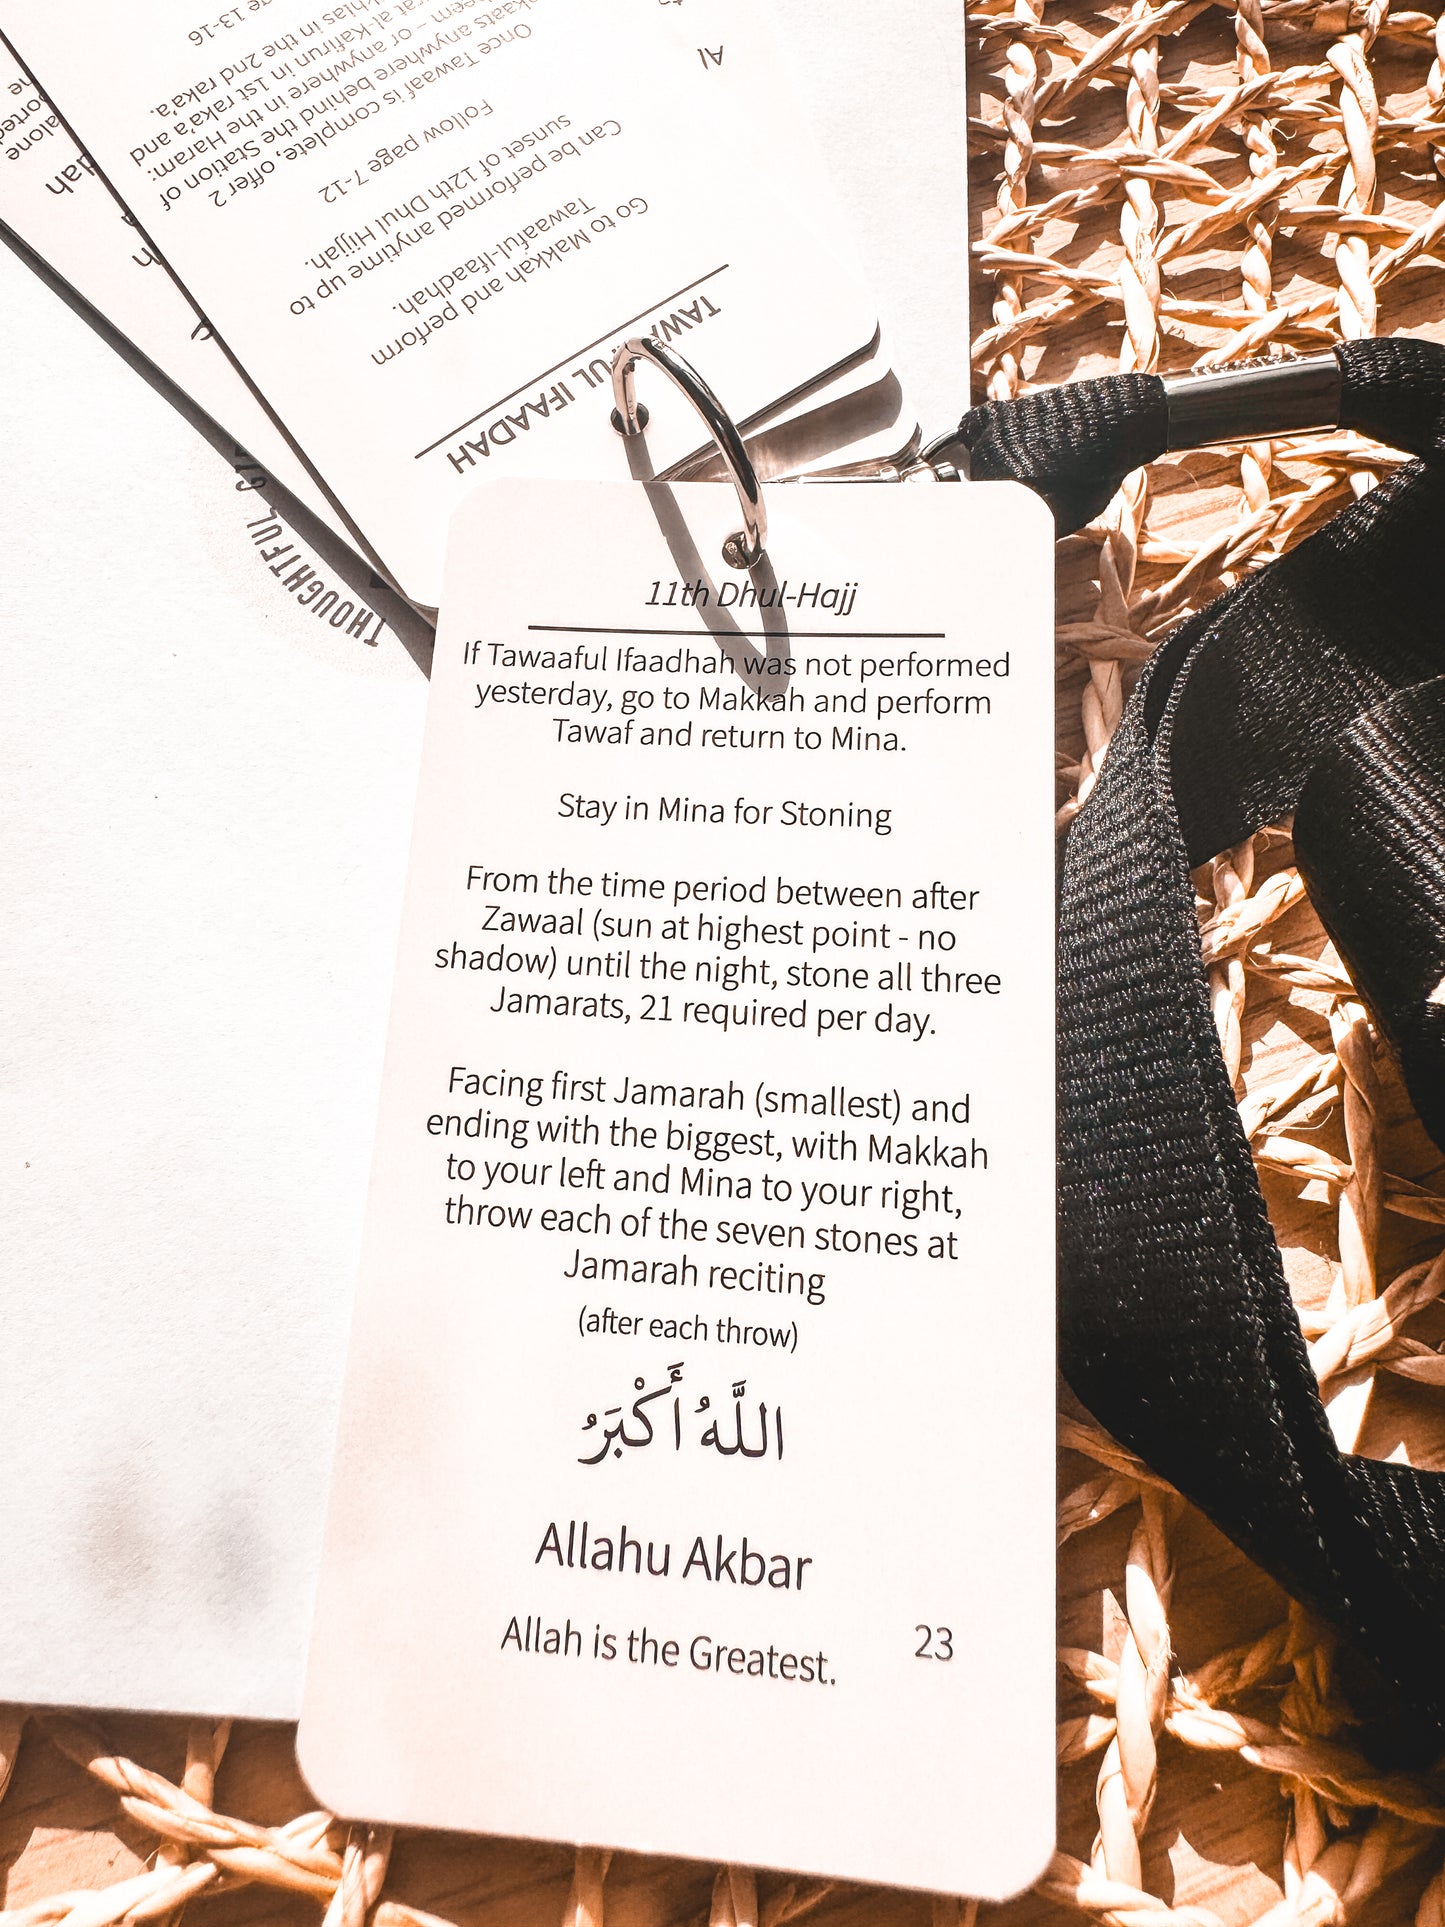 11th Dhul-Hajj
If Tawaaful Ifaadhah was not performed
yesterday, go to Makkah and perform
Tawaf and return to Mina.
Stay in Mina for Stoning
From the time period between after
Zawaal (sun at highest point - no
shadow) until the night, stone all three
Jamarats, 21 required per day.
Facing first Jamarah (smallest) and
ending with the biggest, with Makkah
to your left and Mina to your right,
throw each of the seven stones at
Jamarah reciting
(after each throw)
اللَّهُ أَكْبَرُ
Allahu Akbar
Allah is the Greatest.
23
TAWAFUL IFAADAH
Go to Makkah and perform
Tawaaful-Ifaadhah.
Can be performed anytime up to
sunset of 12th Dhul Hijjah.
Follow page 7-12
Once Tawaaf is complete, offer 2
anywhere behind the Station of
or anywhere in the Haram:
al Kafirun in 1st raka'a and
in the 2nd raka'a.
13-16
Al
alone
THOUGHTFUL